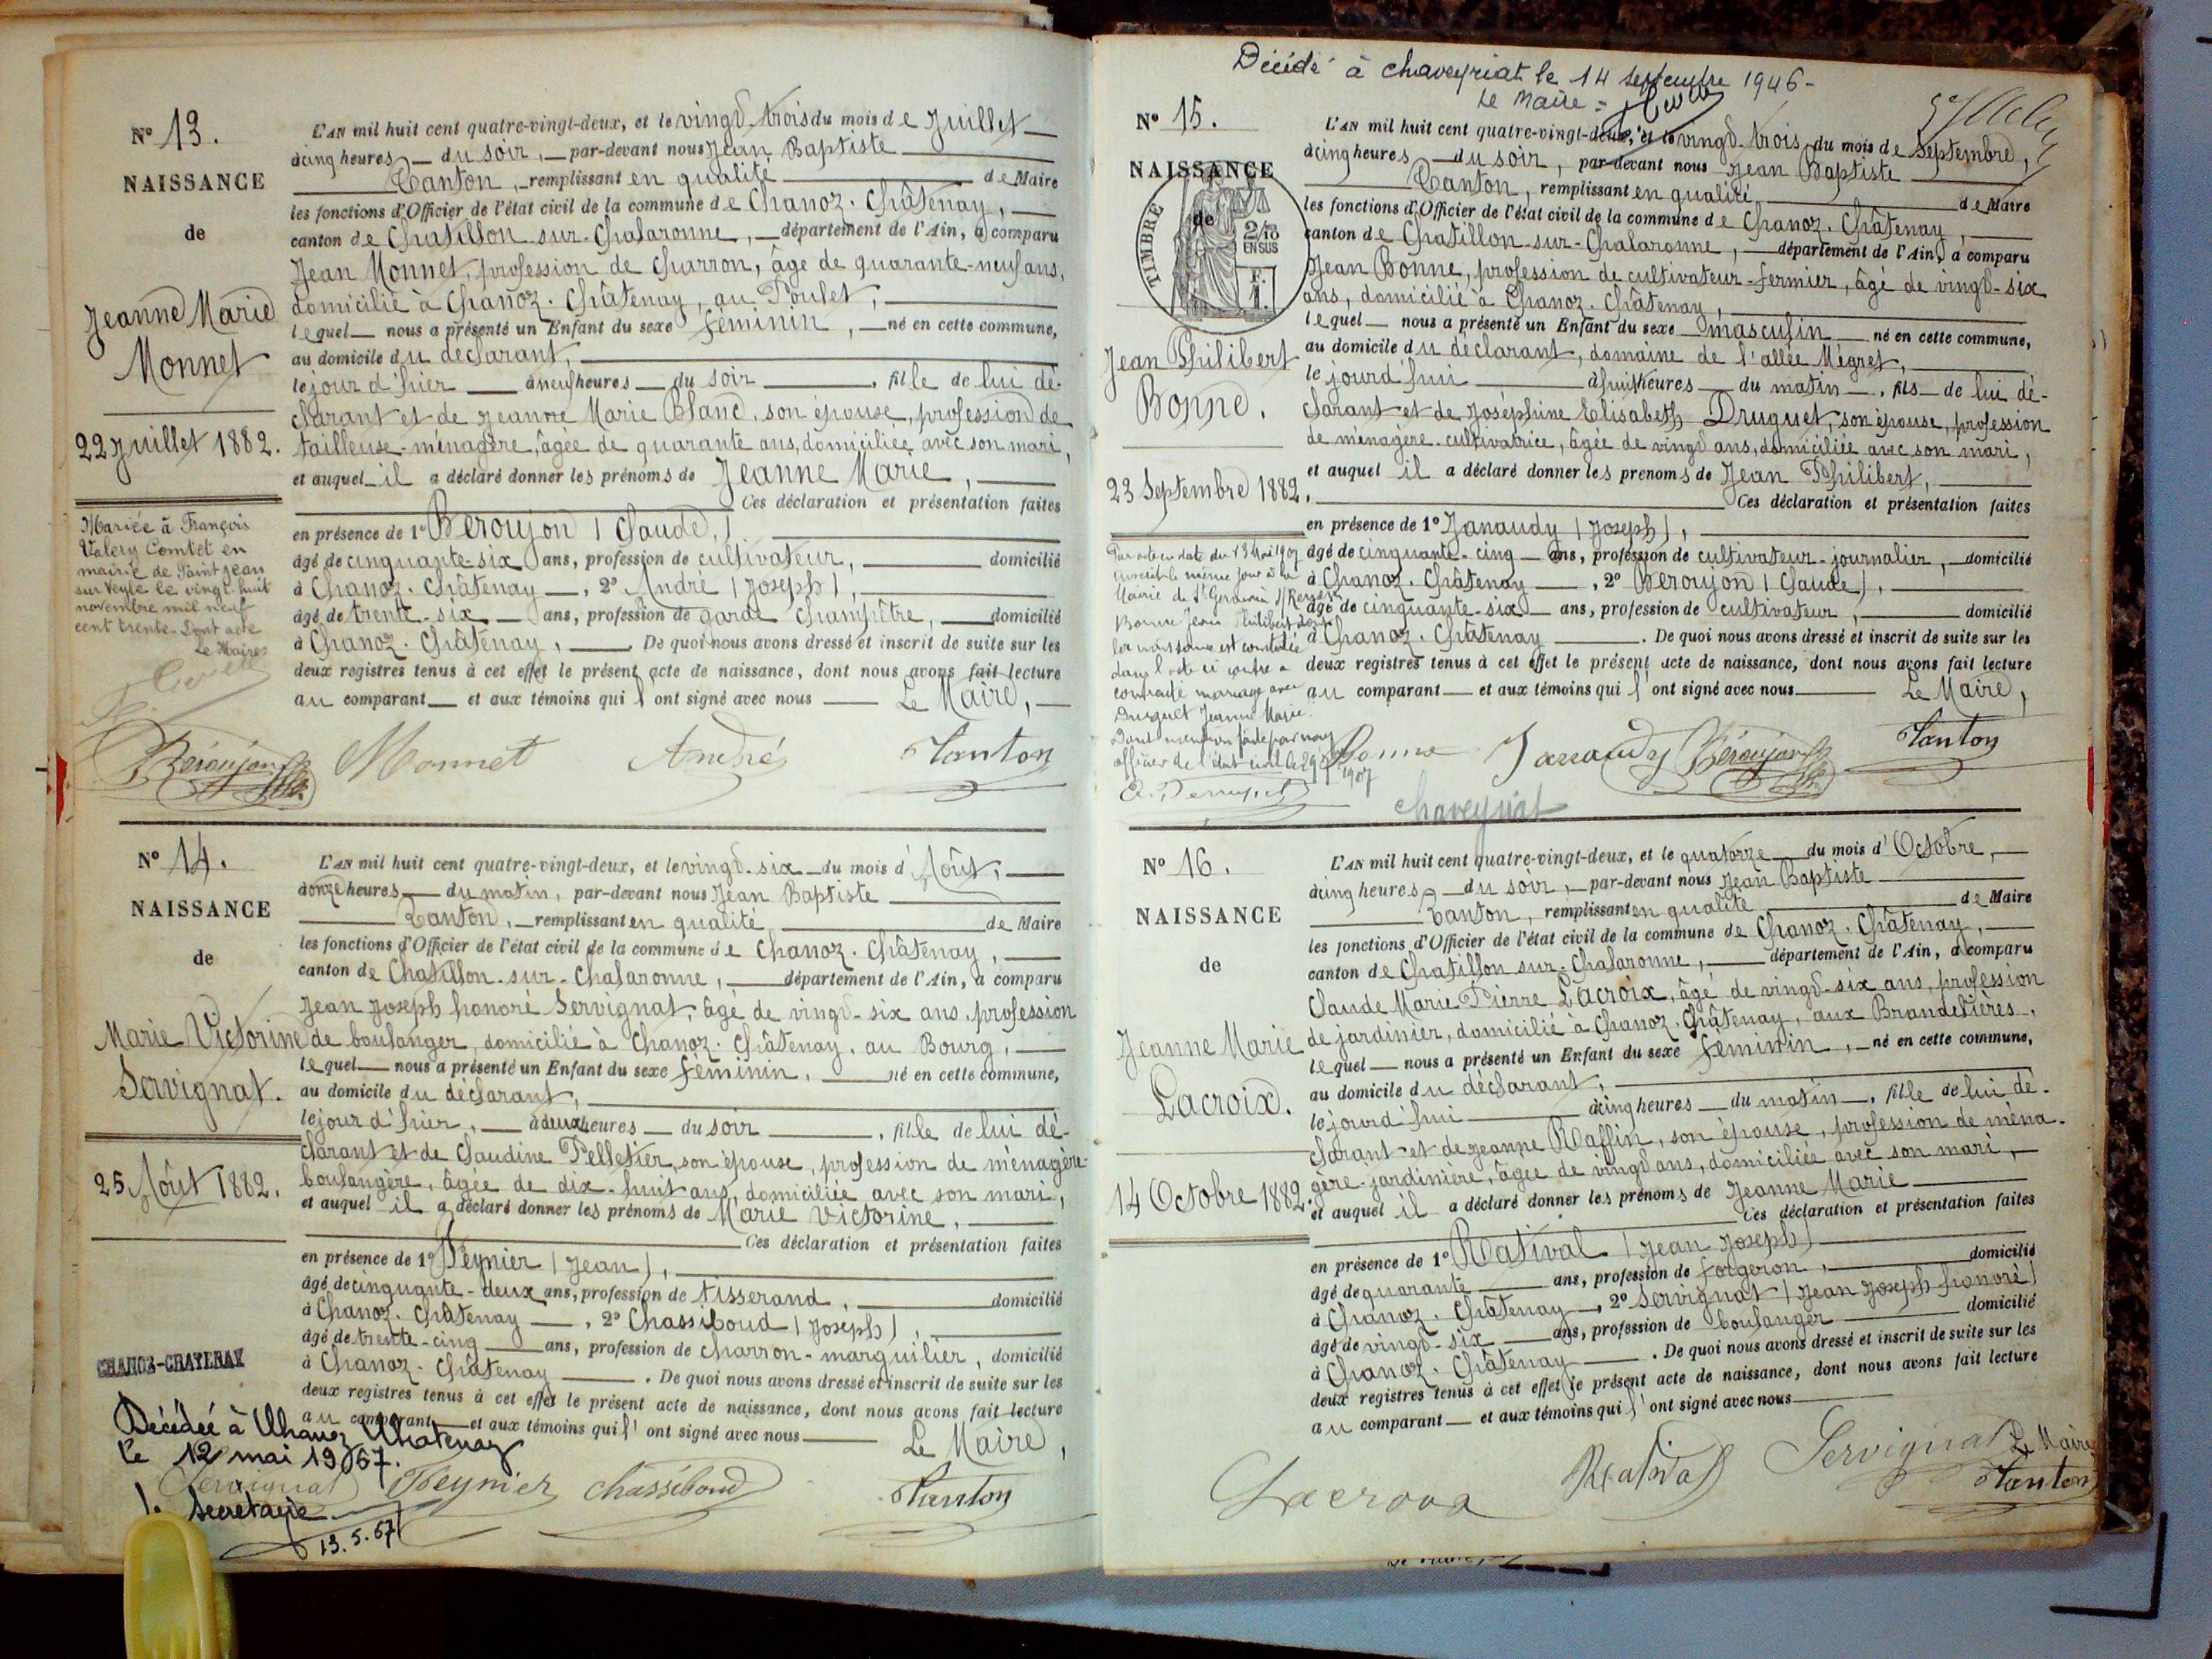 N° 13.
NAISSANCE
de
Jeanne Marie
Monnet
22 Juillet 1882.
Mariée à François
Valery Comtet en
mairie de Saint Jean
sur Veyle le vingt huit
novembre mil neuf
cent trente. Dont acte
Le Maire
L'AN mil huit cent quatre-vingt-deux, et le vingt-trois du mois de Juillet
à cinq heures du soir, par-devant nous Jean Baptiste
Tanton, remplissant en qualité de Maire
les fonctions d'Officier de l'état civil de la commune de Chanoz-Châtenay,
canton de Chatillon-sur-Chalaronne, département de l'Ain, a comparu
Jean Monnet, profession de charron, âgé de quarante-neuf ans,
domicilié à Chanoz-Châtenay, au Poulet,
lequel nous a présenté un Enfant du sexe féminin, né en cette commune,
au domicile du déclarant,
le jour d'hier à neuf heures du soir, fille de lui dé-
clarant et de Jeanne Marie Blanc, son épouse, profession de
tailleuse-ménagère, âgée de quarante ans, domiciliée avec son mari,
et auquel il a déclaré donner les prénoms de Jeanne Marie,
Ces déclaration et présentation faites
en présence de 1° Beroujon (Claude,)
âgé de cinquante-six ans, profession de cultivateur, domicilié
à Chanoz-Châtenay, 2° André (Joseph),
âgé de trente-six ans, profession de garde champêtre, domicilié
à Chanoz-Châtenay, De quoi nous avons dressé et inscrit de suite sur les
deux registres tenus à cet effet le présent acte de naissance, dont nous avons fait lecture
au comparant et aux témoins qui l'ont signé avec nous Le Maire,
Béroujon Monnet André Tanton
N° 14.
NAISSANCE
de
Marie Victorine
Servignat.
25 Août 1882.
L'AN mil huit cent quatre-vingt-deux, et le vingt-six du mois d'Août,
à onze heures du matin, par-devant nous Jean Baptiste
Tanton, remplissant en qualité de Maire
les fonctions d'Officier de l'état civil de la commune de Chanoz-Châtenay,
canton de Chatillon-sur-Chalaronne, département de l'Ain, a comparu
Jean Joseph honoré Servignat, âgé de vingt-six ans, profession
de boulanger, domicilié à Chanoz-Châtenay, au Bourg,
lequel nous a présenté un Enfant du sexe féminin, né en cette commune,
au domicile du déclarant,
le jour d'hier, à deux heures du soir, fille de lui dé-
clarant et de Claudine Pelletier, son épouse, profession de ménagère-
boulangère, âgée de dix-huit ans, domiciliée avec son mari,
et auquel il a déclaré donner les prénoms de Marie Victorine,
Ces déclaration et présentation faites
en présence de 1° Peynier (Jean),
âgé de cinquante-deux ans, profession de tisserand, domicilié
à Chanoz-Châtenay, 2° Chassiboud (Joseph),
âgé de trente-cinq ans, profession de charron-marguilier, domicilié
à Chanoz-Châtenay. De quoi nous avons dressé et inscrit de suite sur les
deux registres tenus à cet effet le présent acte de naissance, dont nous avons fait lecture
au comparant et aux témoins qui l'ont signé avec nous Le Maire,
CHANOZ-CHATENAY
Décédée à Chanoz Chatenay
le 12 mai 1967.
Servignat Peynier Chassiboud Tanton
secretaire
13.5.67
Décédé à Chaveyriat le 14 septembre 1946-
Le Maire =
N° 15.
NAISSANCE
de
TIMBRE
2/10
EN SUS
F.
1.
Jean Philibert
Bonne.
23 Septembre 1882.
Par acte en date du 13 Mai 1907
inscrit le même jour à la
Mairie de St Germain s/Renon
Bonne Jean Philibert dont
la naissance est constatée
dans l'acte ci contre a
contracté mariage avec
Druguet Jeanne Marie.
Dont mention faite par nous
officier de l'état civil le 29
1907
L'AN mil huit cent quatre-vingt-deux, et le vingt-trois du mois de Septembre,
à cinq heures du soir, par-devant nous Jean Baptiste
Tanton, remplissant en qualité de Maire
les fonctions d'Officier de l'état civil de la commune de Chanoz-Châtenay,
canton de Chatillon-sur-Chalaronne, département de l'Ain, a comparu
Jean Bonne, profession de cultivateur-fermier, âgé de vingt-six
ans, domicilié à Chanoz-Châtenay,
lequel nous a présenté un Enfant du sexe masculin né en cette commune,
au domicile du déclarant, domaine de l'allée Mégret,
le jourd'hui à huit heures du matin, fils de lui dé-
clarant et de Joséphine Elisabeth Druguet, son épouse, profession
de ménagère-cultivatrice, âgée de vingt ans, domiciliée avec son mari,
et auquel il a déclaré donner les prenoms de Jean Philibert,
Ces déclaration et présentation faites
en présence de 1° Janaudy (Joseph),
âgé de cinquante-cinq ans, profession de cultivateur-journalier, domicilié
à Chanoz-Châtenay, 2° Beroujon (Claude),
âgé de cinquante-six ans, profession de cultivateur, domicilié
à Chanoz-Châtenay. De quoi nous avons dressé et inscrit de suite sur les
deux registres tenus à cet effet le présent acte de naissance, dont nous avons fait lecture
au comparant et aux témoins qui l'ont signé avec nous Le Maire,
Bonne Janaudy Béroujon Tanton
chaveyriat
N° 16.
NAISSANCE
de
Jeanne Marie
Lacroix.
14 Octobre 1882.
L'AN mil huit cent quatre-vingt-deux, et le quatorze du mois d'Octobre,
à cinq heures du soir, par-devant nous Jean Baptiste
Tanton, remplissant en qualité de Maire
les fonctions d'Officier de l'état civil de la commune de Chanoz-Châtenay,
canton de Chatillon-sur-Chalaronne, département de l'Ain, a comparu
Claude Marie Pierre Lacroix, âgé de vingt-six ans, profession
de jardinier, domicilié à Chanoz-Châtenay, aux Brandetières,
lequel nous a présenté un Enfant du sexe féminin, né en cette commune,
au domicile du déclarant,
le jourd'hui à cinq heures du matin, fille de lui dé-
clarant et de Jeanne Raffin, son épouse, profession de ména-
gère-jardinière, âgée de vingt ans, domiciliée avec son mari,
et auquel il a déclaré donner les prénoms de Jeanne Marie
Ces déclaration et présentation faites
en présence de 1° Rativat (Jean Joseph)
âgé de quarante ans, profession de forgeron, domicilié
à Chanoz-Châtenay, 2° Servignat (Jean Joseph honoré)
âgé de vingt-six ans, profession de boulanger domicilié
à Chanoz-Châtenay. De quoi nous avons dressé et inscrit de suite sur les
deux registres tenus à cet effet le présent acte de naissance, dont nous avons fait lecture
au comparant et aux témoins qui l'ont signé avec nous
Le Maire
Lacroix Rativat Servignat Tanton